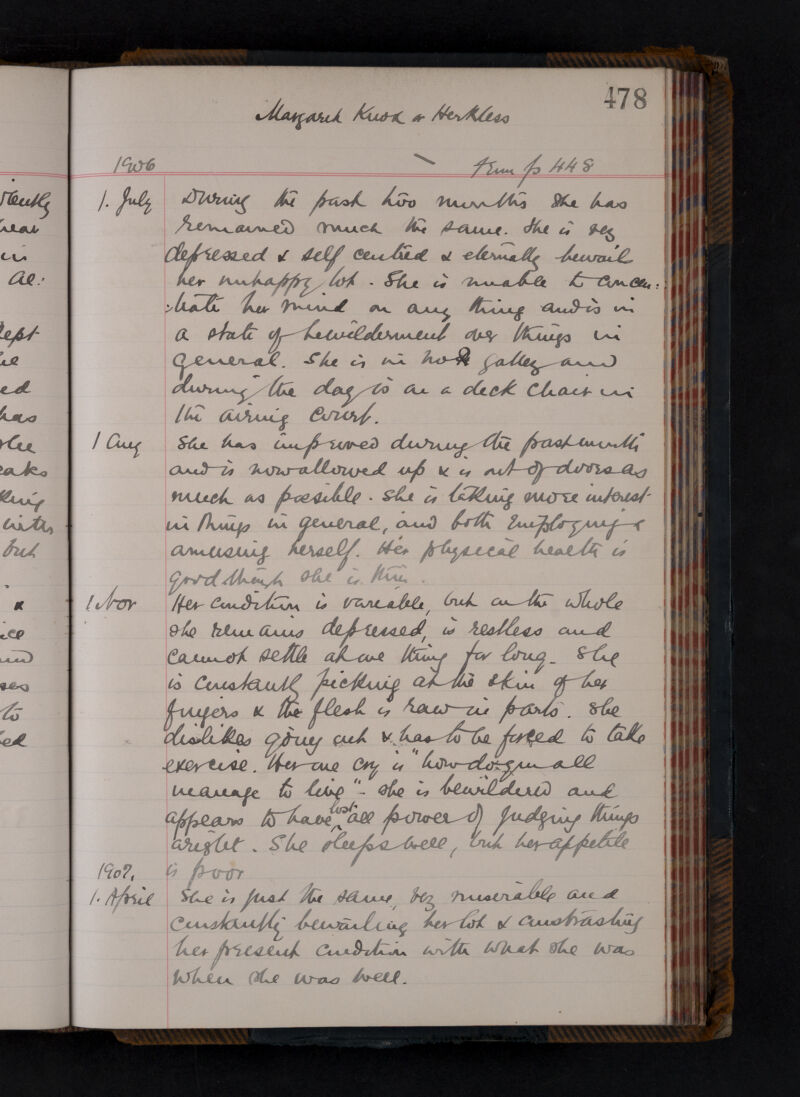 478
Margaret Knox or Herkless
1906 from p 448
1. July During the past two months she has
remained much the same. She is very
depressed & self centred & eternally bewail
her unhappy lot. She is unable to concen:
:trate her mind on any thing and is in
a state of bewilderment over things in
general. She is in No gallery and
during the day is on a deck chair in
the airing court.
1 Aug She has improved during the past month
and is now allowed up & is out of doors as
much as possible. She is taking more interest
in things in general, and both employing &
amusing herself. Her physical health is
good though she is thin.
1 Nov Her condition is variable, but on the whole
she remains depressed, is restless and
cannot settle at one thing for long. She
is constantly picking at the skin of her
fingers & the flesh is raw in parts. She
dislikes going out & has to be forced to take
exercise. Her one cry is "how do you all
manage to live" - she is bewildered and
appears to have lost all power of judging things
aright. She sleeps well, but her appetite
is poor
1907.
1. April She is just the same, very miserable and
constantly bewailing her lot & contrasting
her present condition with what she was
when she was well.